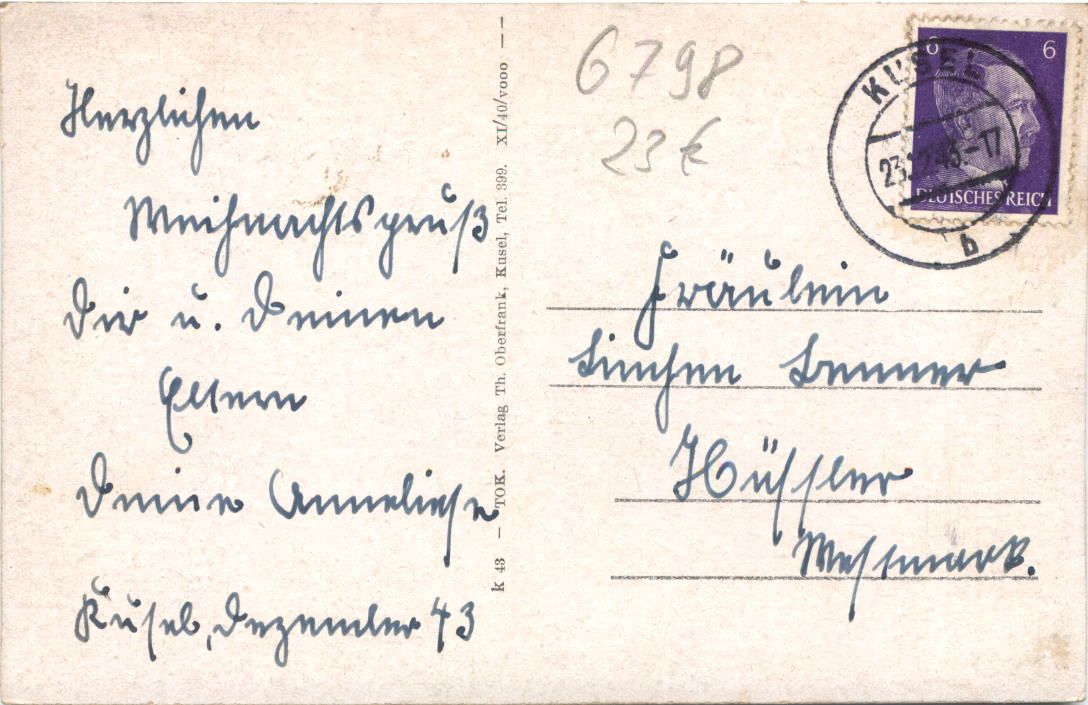 Herzlichen
Weihnachtsgruß
Dir u. Deinen
Eltern
Deine Anneliese
Kusel, Dezember 43
k 43 — TOK. Verlag Th. Oberfrank, Kusel, Tel. 399. XI/40/vooo
6798
23 €
6 6
DEUTSCHES REICH
KUSEL
23.12.43.-17
b
Fräulein
Linchen Benner
Hüffler
Westmark.